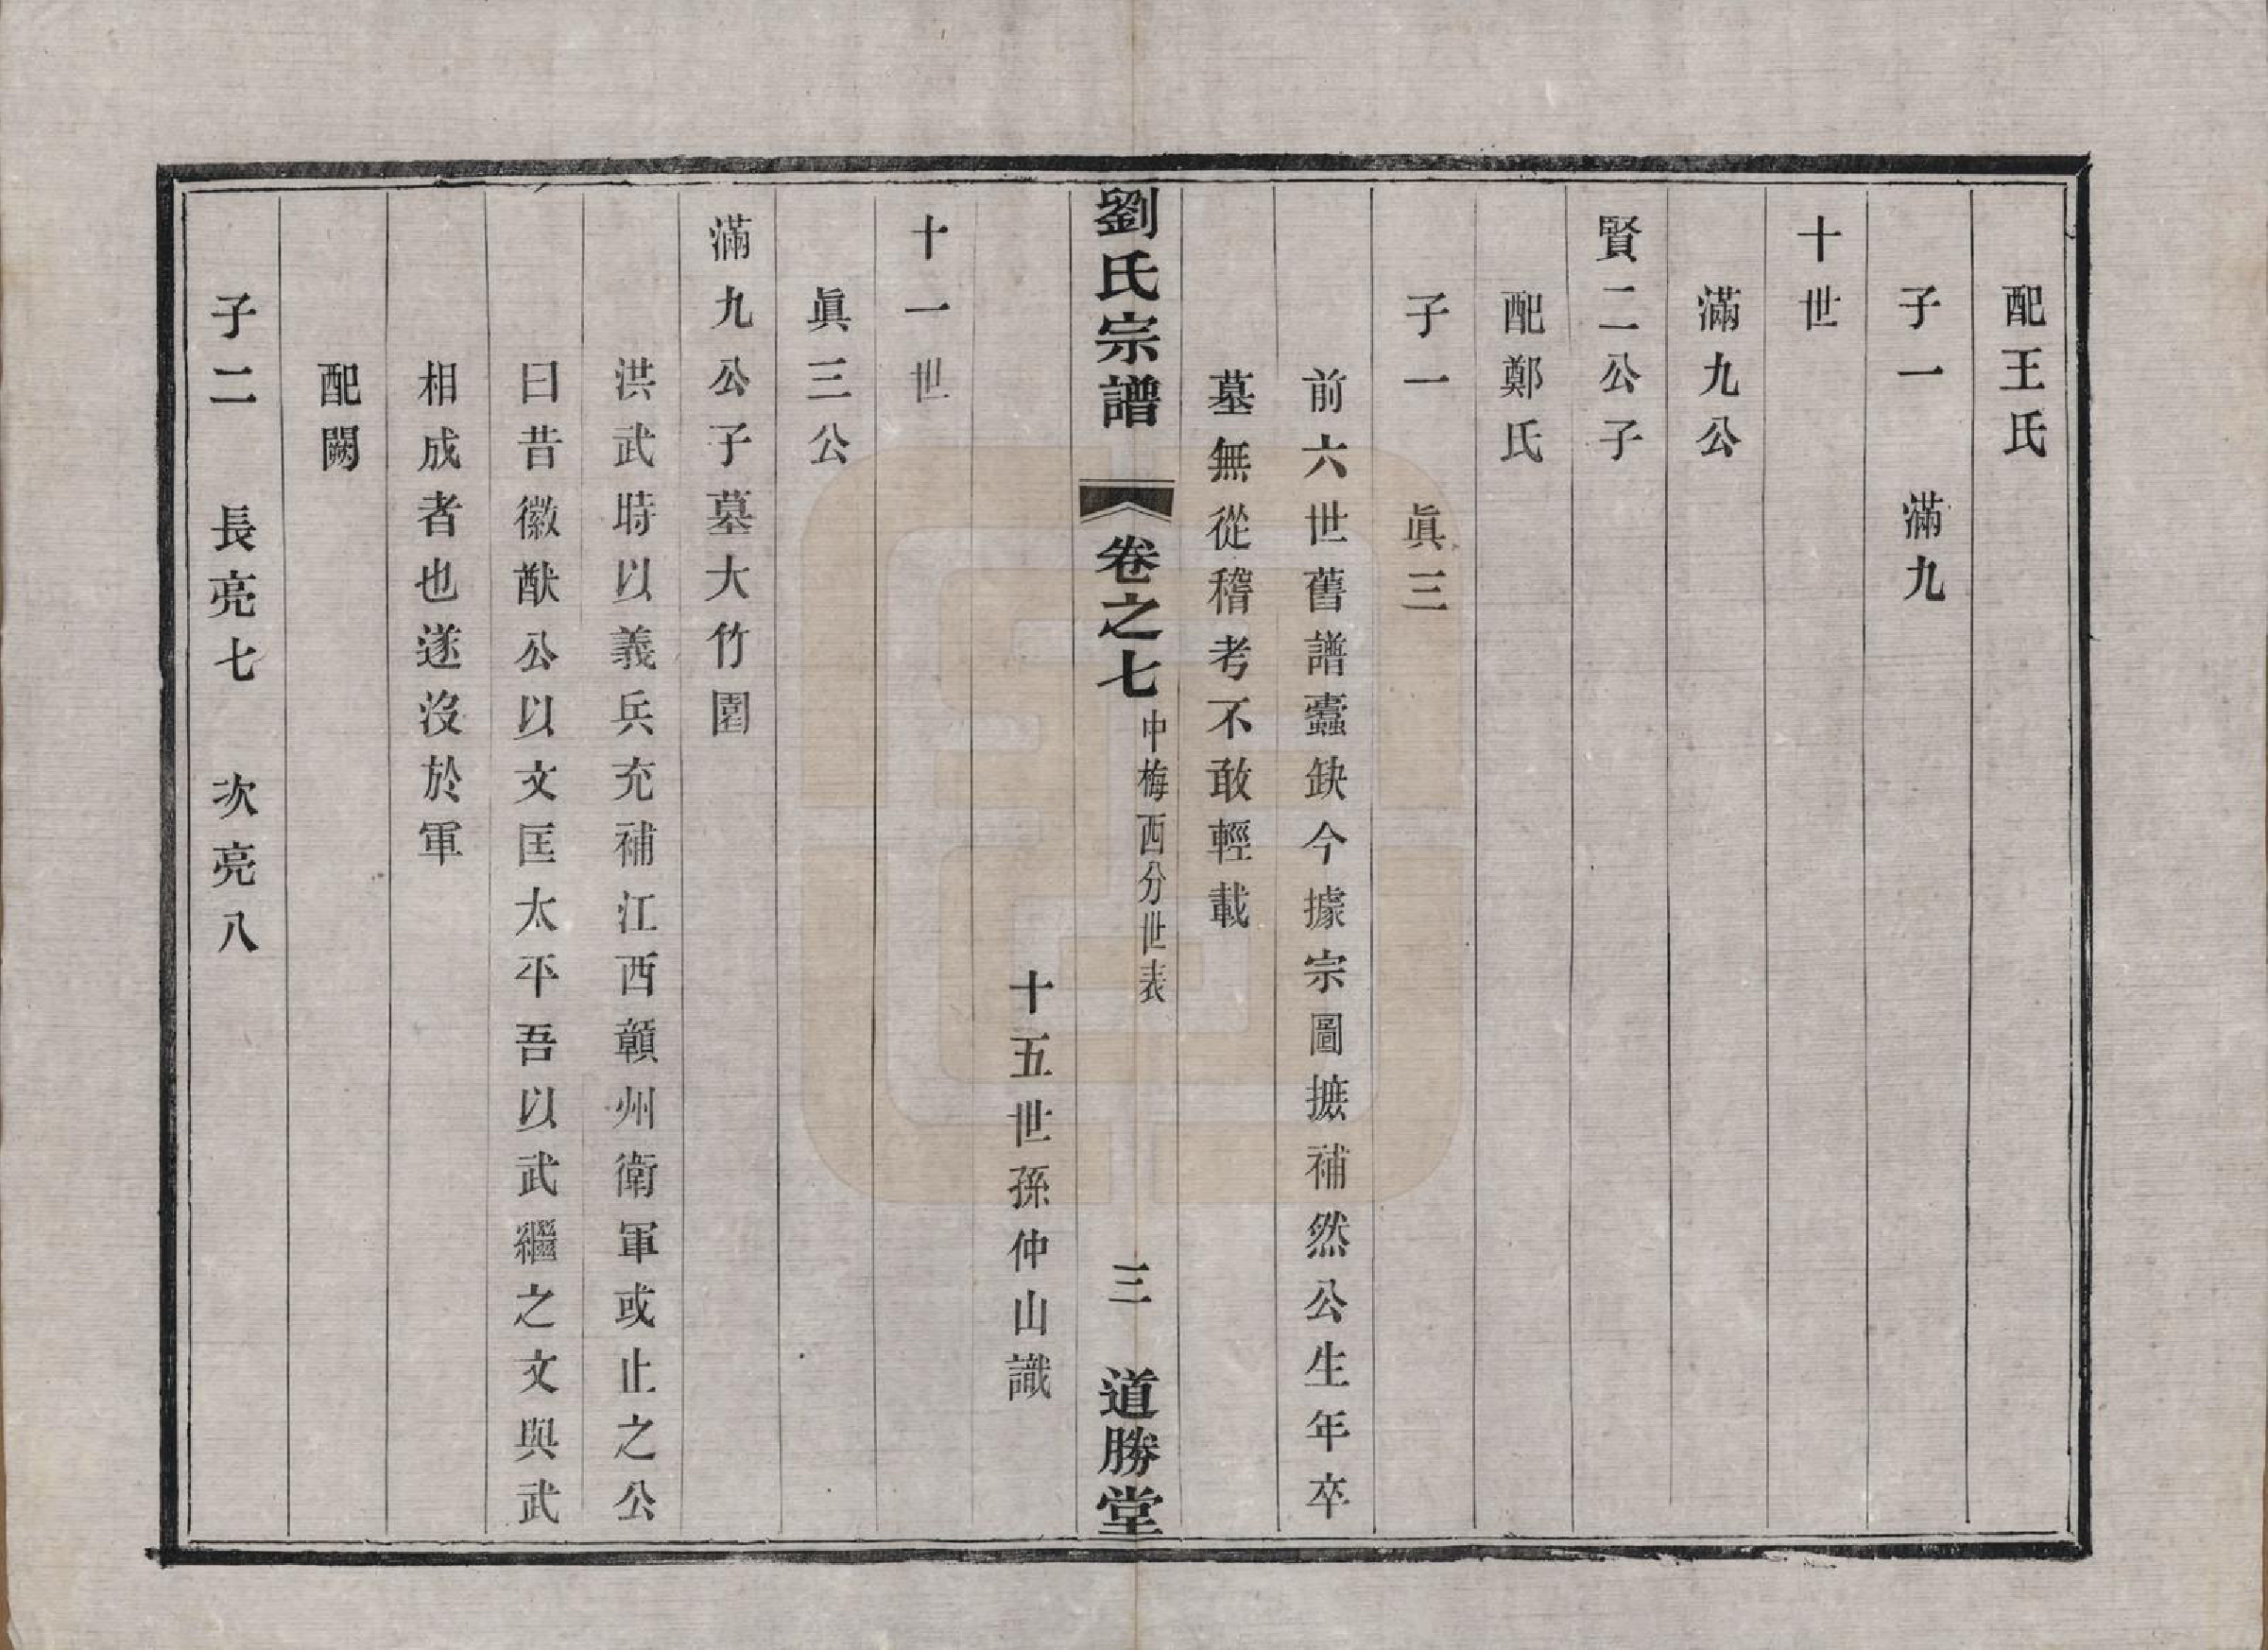 配王氏
子一　滿九
十世
滿九公
賢二公子
配鄭氏
子一　眞三
前六世舊譜蠹缺今據宗圖摭補然公生年卒
墓無從稽考不敢輕載
劉氏宗譜　卷之七　中梅西分世表　三　道勝堂
十五世孫仲山識
十一世
眞三公
滿九公子墓大竹園
洪武時以義兵充補江西贑州衛軍或止之公
曰昔徽猷公以文匡太平吾以武繼之文與武
相成者也遂沒於軍
配闕
子二　長亮七　次亮八